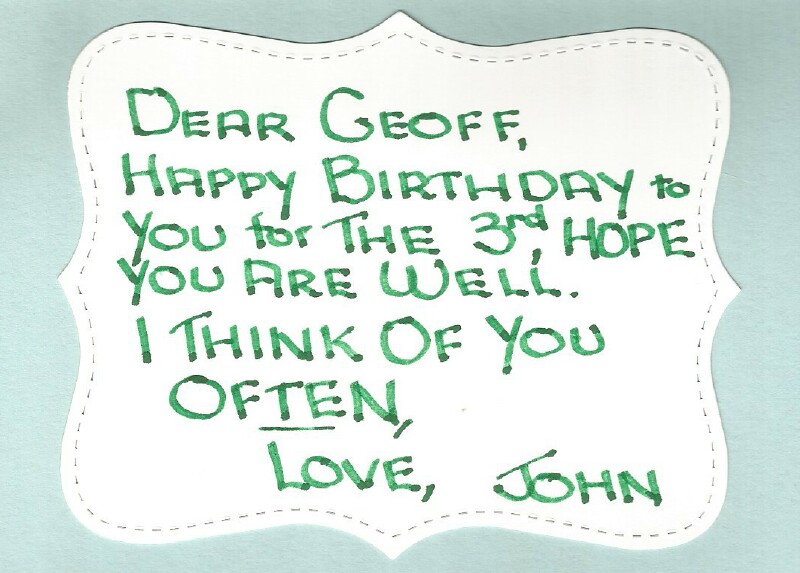 DEAR GEOFF,
HAPPY BIRTHDAY to
YOU for THE 3rd, HOPE
YOU ARE WELL.
I THINK OF YOU
OFTEN,
LOVE, JOHN